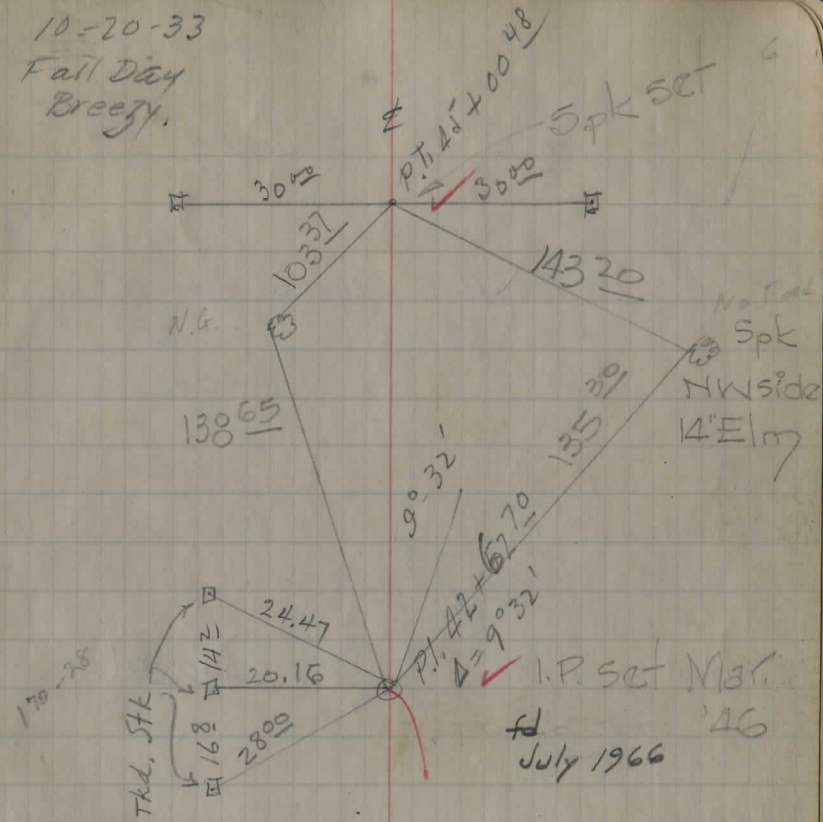 10-20-33
Fall Day
Breezy.
6
℄
P.T. 45+00 48
Spk Set
30 00
30 00
103 37
143 20
N.G.
No Fnd
Spk
NW side
14" Elm
138 65
135 30
9°-32'
P.I. 42+67 70
Δ=9°32'
24.47
14 2
20.16
16 8
28 00
Tkd. Stk
170-28
I.P. Set Mar.
'46
fd
July 1966